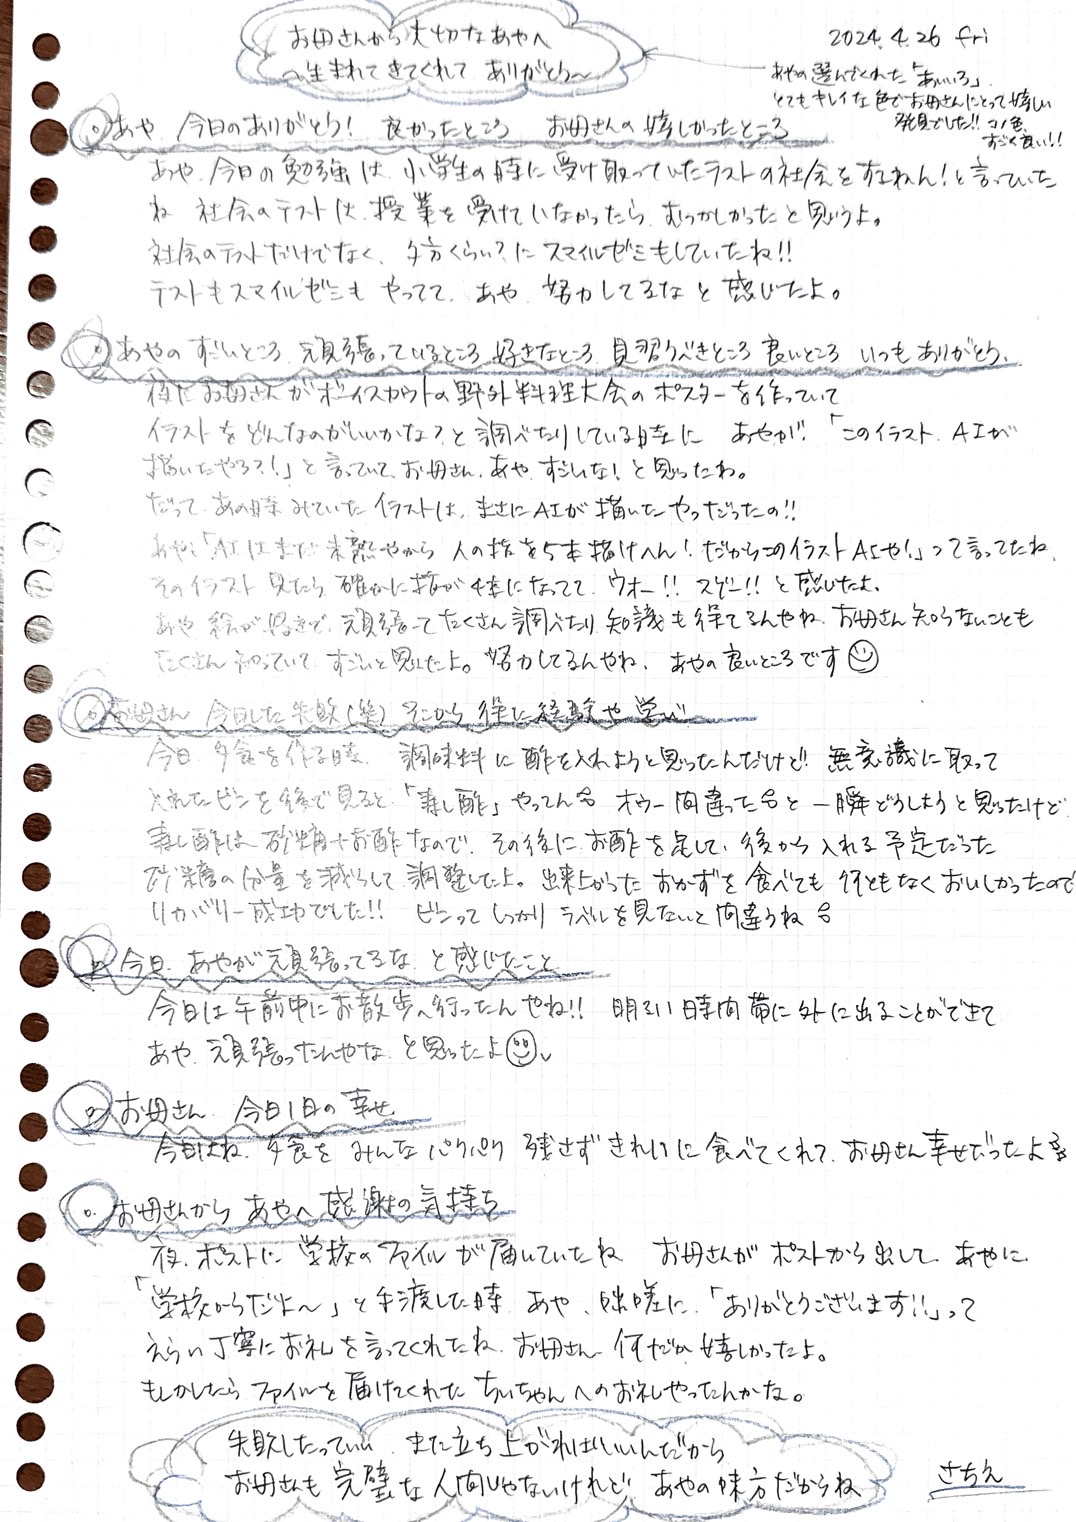 お母さんから大切なあやへ
〜生まれてきてくれて ありがとう〜
2024.4.26 fri
あやの選んでくれた「あいいろ」
とてもキレイな色でお母さんにとって嬉しい
発見でした!! この色
すごく良い!!
あや 今日のありがとう! 良かったところ お母さんの嬉しかったところ
あや 今日の勉強は 小学生の時に受け取っていたテストの社会をするねん!と言っていた
ね 社会のテストは 授業を受けていなかったら むつかしかったと思うよ。
社会のテストだけでなく、夕方くらい?に スマイルゼミもしていたね!!
テストもスマイルゼミも やってて、あや 努力してるな と 感じたよ。
あやの すごいところ 頑張っているところ 好きなところ 見習うべきところ 良いところ いつも ありがとう。
夜に お母さんが ボーイスカウトの 野外料理大会の ポスターを作っていて
イラストを どんなのがいいかな?と 調べたりしている時に あやが「このイラスト、AIが
描いたやろ?!」と言っていて、お母さん、あや すごいな!と思ったね。
だって あの時 みていた イラストは、まさにAIが描いたやつだったの!!
あや:「AIはまだ 未熟やから 人の指を5本描けへん! だからこのイラスト AIや!」って言ってたね、
そのイラスト 見たら、確かに指が 4本になってて、ウオー!! スゲー!! と 感じたよ。
あや 絵が 好きで、頑張って たくさん 調べたり 知識も 得てるんやね、お母さん 知らないことも
たくさん 知っていて、すごいと 思ったよ。努力してるんやね、あやの良いところです
お母さん 今日した 失敗(笑) そこから 得た 経験や 学び
今日 夕食を作る時、調味料に 酢を入れようと思ったんだけど!! 無意識に取って
入れたビンを後で見ると、「寿し酢」やってん オウー 間違ったと 一瞬どうしようと思ったけど
寿し酢は 砂糖+お酢なので、その後に お酢を足して、後から 入れる 予定だった
砂糖の分量を減らして 調整したよ。出来上がった おかずを食べても 何ともなくおいしかったので
リカバリー成功でした!! ビンって しっかり ラベルを見ないと 間違うね
今日、あやが 頑張ってるな と感じたこと
今日は午前中にお散歩へ行ったんやね!! 明るい時間帯に外に出ることができて
あや 頑張ったんやな と思ったよ
お母さん 今日1日の 幸せ
今日はね、夕食を みんな パクパク 残さず きれいに 食べてくれて、お母さん幸せだったよ
お母さんから あやへ 感謝の気持ち
夜、ポストに 学校の ファイルが届いていたね お母さんが ポストから出して、あやに
「学校からだよ〜」と 手渡した時、あや、咄嗟に、「ありがとうございます!!」って
えらい丁寧にお礼を言ってくれたね、お母さん 何だか 嬉しかったよ。
もしかしたら ファイルを 届けてくれた ちいちゃんへのお礼やったんかな。
失敗したっていい、また立ち上がればいいんだから
お母さんも完璧な人間じゃないけれど あやの味方だからね
さちえ